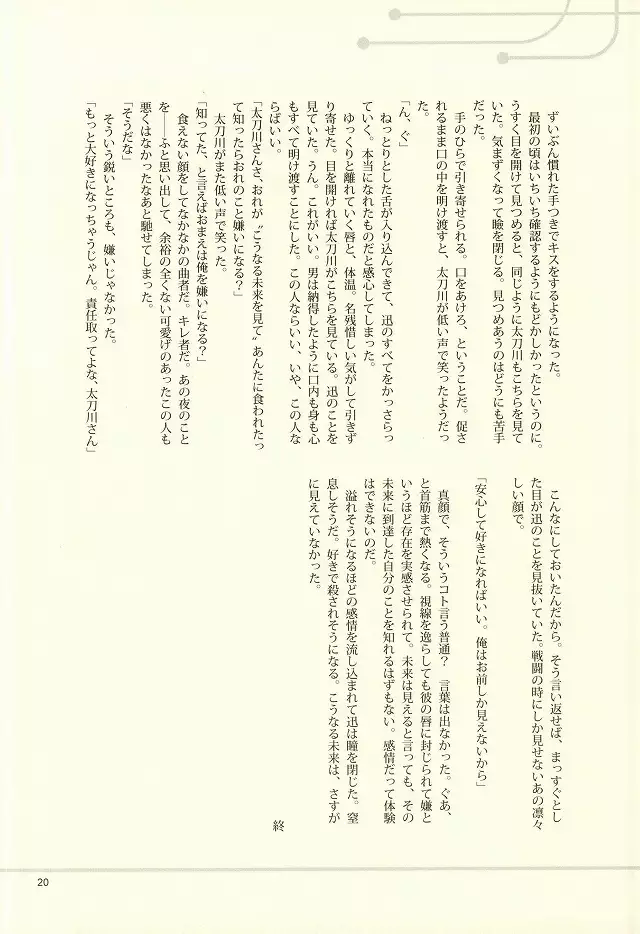 ずいぶん慣れた手つきでキスをするようになった。
最初の頃はいちいち確認するようにもどかしかったというのに。
うすく目を開けて見つめると、同じように太刀川もこちらを見て
いた。気まずくなって瞼を閉じる。見つめあうのはどうにも苦手
だった。
手のひらで引き寄せられる。口をあけろ、ということだ。促さ
れるまま口の中を明け渡すと、太刀川が低い声で笑ったようだっ
た。
「ん、ぐ」
ねっとりとした舌が入り込んできて、迅のすべてをかっさらっ
ていく。本当になれたものだと感心してしまった。
ゆっくりと離れていく唇と、体温。名残惜しい気がして引きず
り寄せた。目を開ければ太刀川がこちらを見ている。迅のことを
見ていた。うん。これがいい。男は納得したように口内も身も心
もすべて明け渡すことにした。この人ならいい、いや、この人な
らばいい。
「太刀川さんさ、おれが〝こうなる未来を見て〟あんたに食われたっ
て知ったらおれのこと嫌いになる？」
太刀川がまた低い声で笑った。
「知ってた、と言えばおまえは俺を嫌いになる？」
食えない顔をしてなかなかの曲者だ。キレ者だ。あの夜のこと
を――ふと思い出して、余裕の全くない可愛げのあったこの人も
悪くはなかったなあと馳せてしまった。
「そうだな」
そういう鋭いところも、嫌いじゃなかった。
「もっと大好きになっちゃうじゃん。責任取ってよな、太刀川さん」
こんなにしておいたんだから。そう言い返せば、まっすぐとし
た目が迅のことを見抜いていた。戦闘の時にしか見せないあの凛々
しい顔で。
「安心して好きになればいい。俺はお前しか見えないから」
真顔で、そういうコト言う普通？　言葉は出なかった。ぐあ、
と首筋まで熱くなる。視線を逸らしても彼の唇に封じられて嫌と
いうほど存在を実感させられて。未来は見えると言っても、その
未来に到達した自分のことを知れるはずもない。感情だって体験
はできないのだ。
溢れそうになるほどの感情を流し込まれて迅は瞳を閉じた。窒
息しそうだ。好きで殺されそうになる。こうなる未来は、さすが
に見えていなかった。
終
20